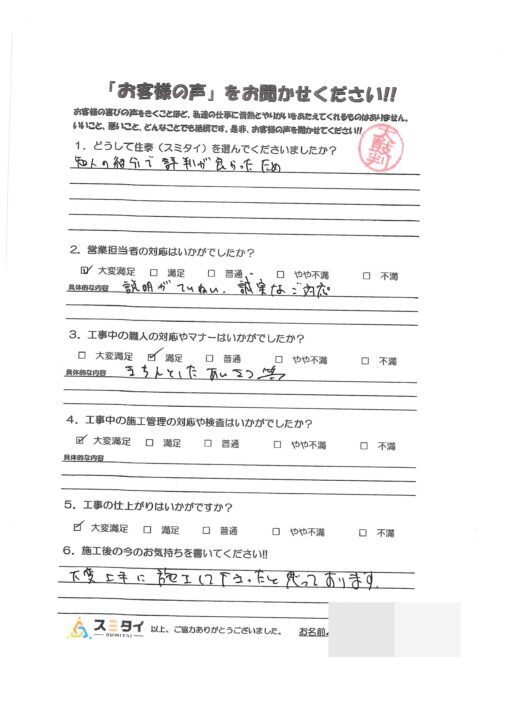 「お客様の声」をお聞かせください!!
お客様の喜びの声をきくことほど、私達の仕事に情熱とやりがいをあたえてくれるものはありません。
いいこと、悪いこと、どんなことでも結構です。是非、お客様の声を聞かせてください!!
太鼓判
1．どうして住泰（スミタイ）を選んでくださいましたか？
知人の紹介で評判が良かったため
2．営業担当者の対応はいかがでしたか？
☑ 大変満足 □ 満足 □ 普通 □ やや不満 □ 不満
具体的な内容 説明がていねい、誠実なご対応
3．工事中の職人の対応やマナーはいかがでしたか？
□ 大変満足 ☑ 満足 □ 普通 □ やや不満 □ 不満
具体的な内容 きちんとしたあいさつ等
4．工事中の施工管理の対応や検査はいかがでしたか？
☑ 大変満足 □ 満足 □ 普通 □ やや不満 □ 不満
具体的な内容
5．工事の仕上がりはいかがですか？
☑ 大変満足 □ 満足 □ 普通 □ やや不満 □ 不満
6．施工後の今のお気持ちを書いてください!!
大変上手に施工して下さったと思っております。
スミタイ 以上、ご協力ありがとうございました。 お名前
SUMITAI